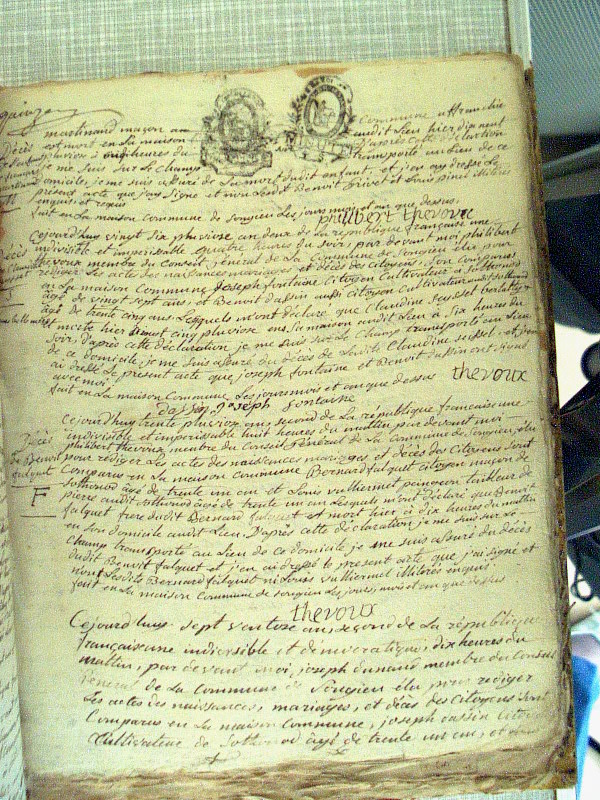 martinand maçon au
Commune affranchie
Décès
est mort en sa maison
audit Lieu hier dix neuf
pluviose à onze heures du
d'après cette déclaration
je me suis sur Le champ
transporté au Lieu de ce
domicile, je me suis assuré de La mort dudit enfant, et j'en ay dressé Le
présent acte que j'ay signé et non Lesdit Benoit
illitérés
enquis et requis
fait en La maison Commune de songieu Les jours mois et an que dessus,
philibert thevoux
Décès
Cejourdhuy vingt six pluviose an deux de La république française une
indivisible et impérissable quatre heures du soir, par devant moi philibert
thevoux membre du Conseil général de La Commune de songieu élu pour
rédiger Les actes des naissances mariages et décès des citoyens, son comparus
en La maison Commune Joseph fontaine Citoyen Cultivateur à sothonod
âgé de vingt sept ans, et Benoit dassin aussi Citoyen Cultivateur
âgé de trente cinq ans, Lesquels m'ont déclaré que Claudine seissel
morte hier vingt cinq pluviose en sa maison audit Lieu à six heures du
soir, d'après cette déclaration je me suis sur Le Champ transporté au Lieu
de ce domicile, je me suis assuré du décès de Ladite Claudine seissel et j'en
ai dressé Le présent acte que joseph fontaine et Benoit dassin ont signé
avec moi
fait en La maison Commune Les jours mois et an que dessus thevoux
dassin Joseph fontaine
Décès
de Benoit
falquet
F
Cejourdhuy trente pluviose an second de La république française une
indivisible et impérissable huit heures du mattin par devant moi
philibert thevoux membre du Conseil Général de La Commune de songieu, élu
pour rédiger Les actes des naissances mariages et décès des Citoyens sont
Comparus en La maison Commune Bernard falquet citoyen maçon de
sothonod âgé de trente un an et Louis vulliermet tailleur de
pierre audit sothonod âgé de trente un an Lesquels m'ont déclaré que Benoit
falquet frère dudit Bernard falquet est mort hier à dix heures du mattin
en son domicile audit Lieu, D'après cette déclaration, je me suis sur Le
Champ transporté au Lieu de ce domicile, je me suis assuré du décès
dudit Benoit falquet et j'en ai dressé Le présent acte que j'ai signé et
non Lesdits Bernard falquet ni Louis vulliermet illitérés enquis
fait en La maison Commune de songieu Les jours, mois et an que dessus
thevoux
Cejourdhuy sept ventose an second de La république
française une indivisible et démocratique, dix heures du
mattin, par devant moi joseph dunand membre du Conseil
général de La Commune de Songieu élu pour rédiger
Les actes des naissances, mariages, et décès des Citoyens sont
Comparus en La maison Commune, joseph dassin citoyen
Cultivateur de Sothonod âgé de trente un an, et